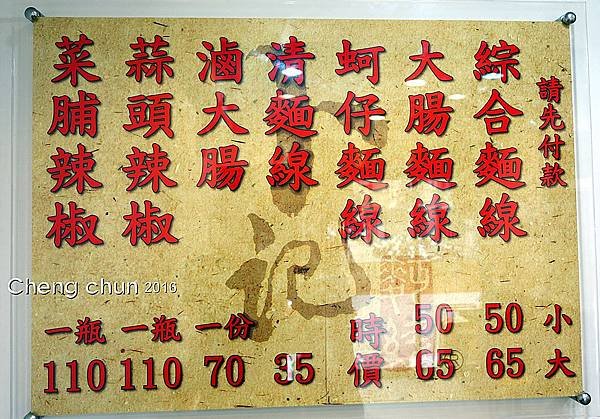 請先付款 小 大
綜合麵線 50 65
大腸麵線 50 65
蚵仔麵線 時價
清麵線 35
滷大腸 一份 70
蒜頭辣椒 一瓶 110
菜脯辣椒 一瓶 110
記
Cheng chun 2016